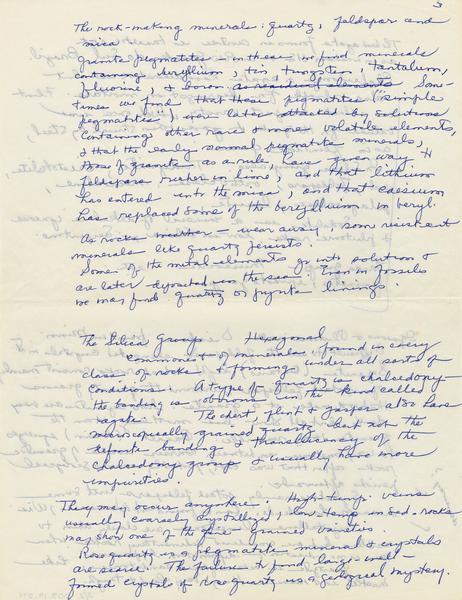 3
The rock-making minerals: quartz, feldspar and
mica
Granite pegmatites - in these we find minerals
containing beryllium, tin, tungsten, tantalum,
fluorine, & boron as residual elements Some-
times we find that these pegmatites ("simple
pegmatites") were later attacked by solutions
containing other rare & more volatile elements,
& that the early normal pegmatite minerals,
those of granite as a rule, have given way to
feldspars richer in lime, and that lithium
has entered into the mica, and that caesium
has replaced some of the beryllium in beryl.
As rocks weather - wear away, some resistent
minerals like quartz persists.
Some of the metal elements go into solution &
are later deposited in the sea. Even in fossils
we may find quartz or pyrite linings.
The Silica Group Hexagonal
Commonest of minerals, found in every
class of rocks & forming under all sorts of
conditions. A type of quartz is chalcedony-
the banding is obvious in the kind called
agate. The chert, flint & jasper also have
microscopically grained quartz but not the
definite banding & translucency of the
chalcedony group & usually have more
impurities.
They may occur anywhere. High-temp. veins
usually coarsely crystallized, low-temp in sed. rocks
may show one of the fine-grained varieties.
Rose quartz is a pegmatite mineral & crystals
are scarce. The failure to find large well-
formed crystals of rose quartz is a geological mystery.